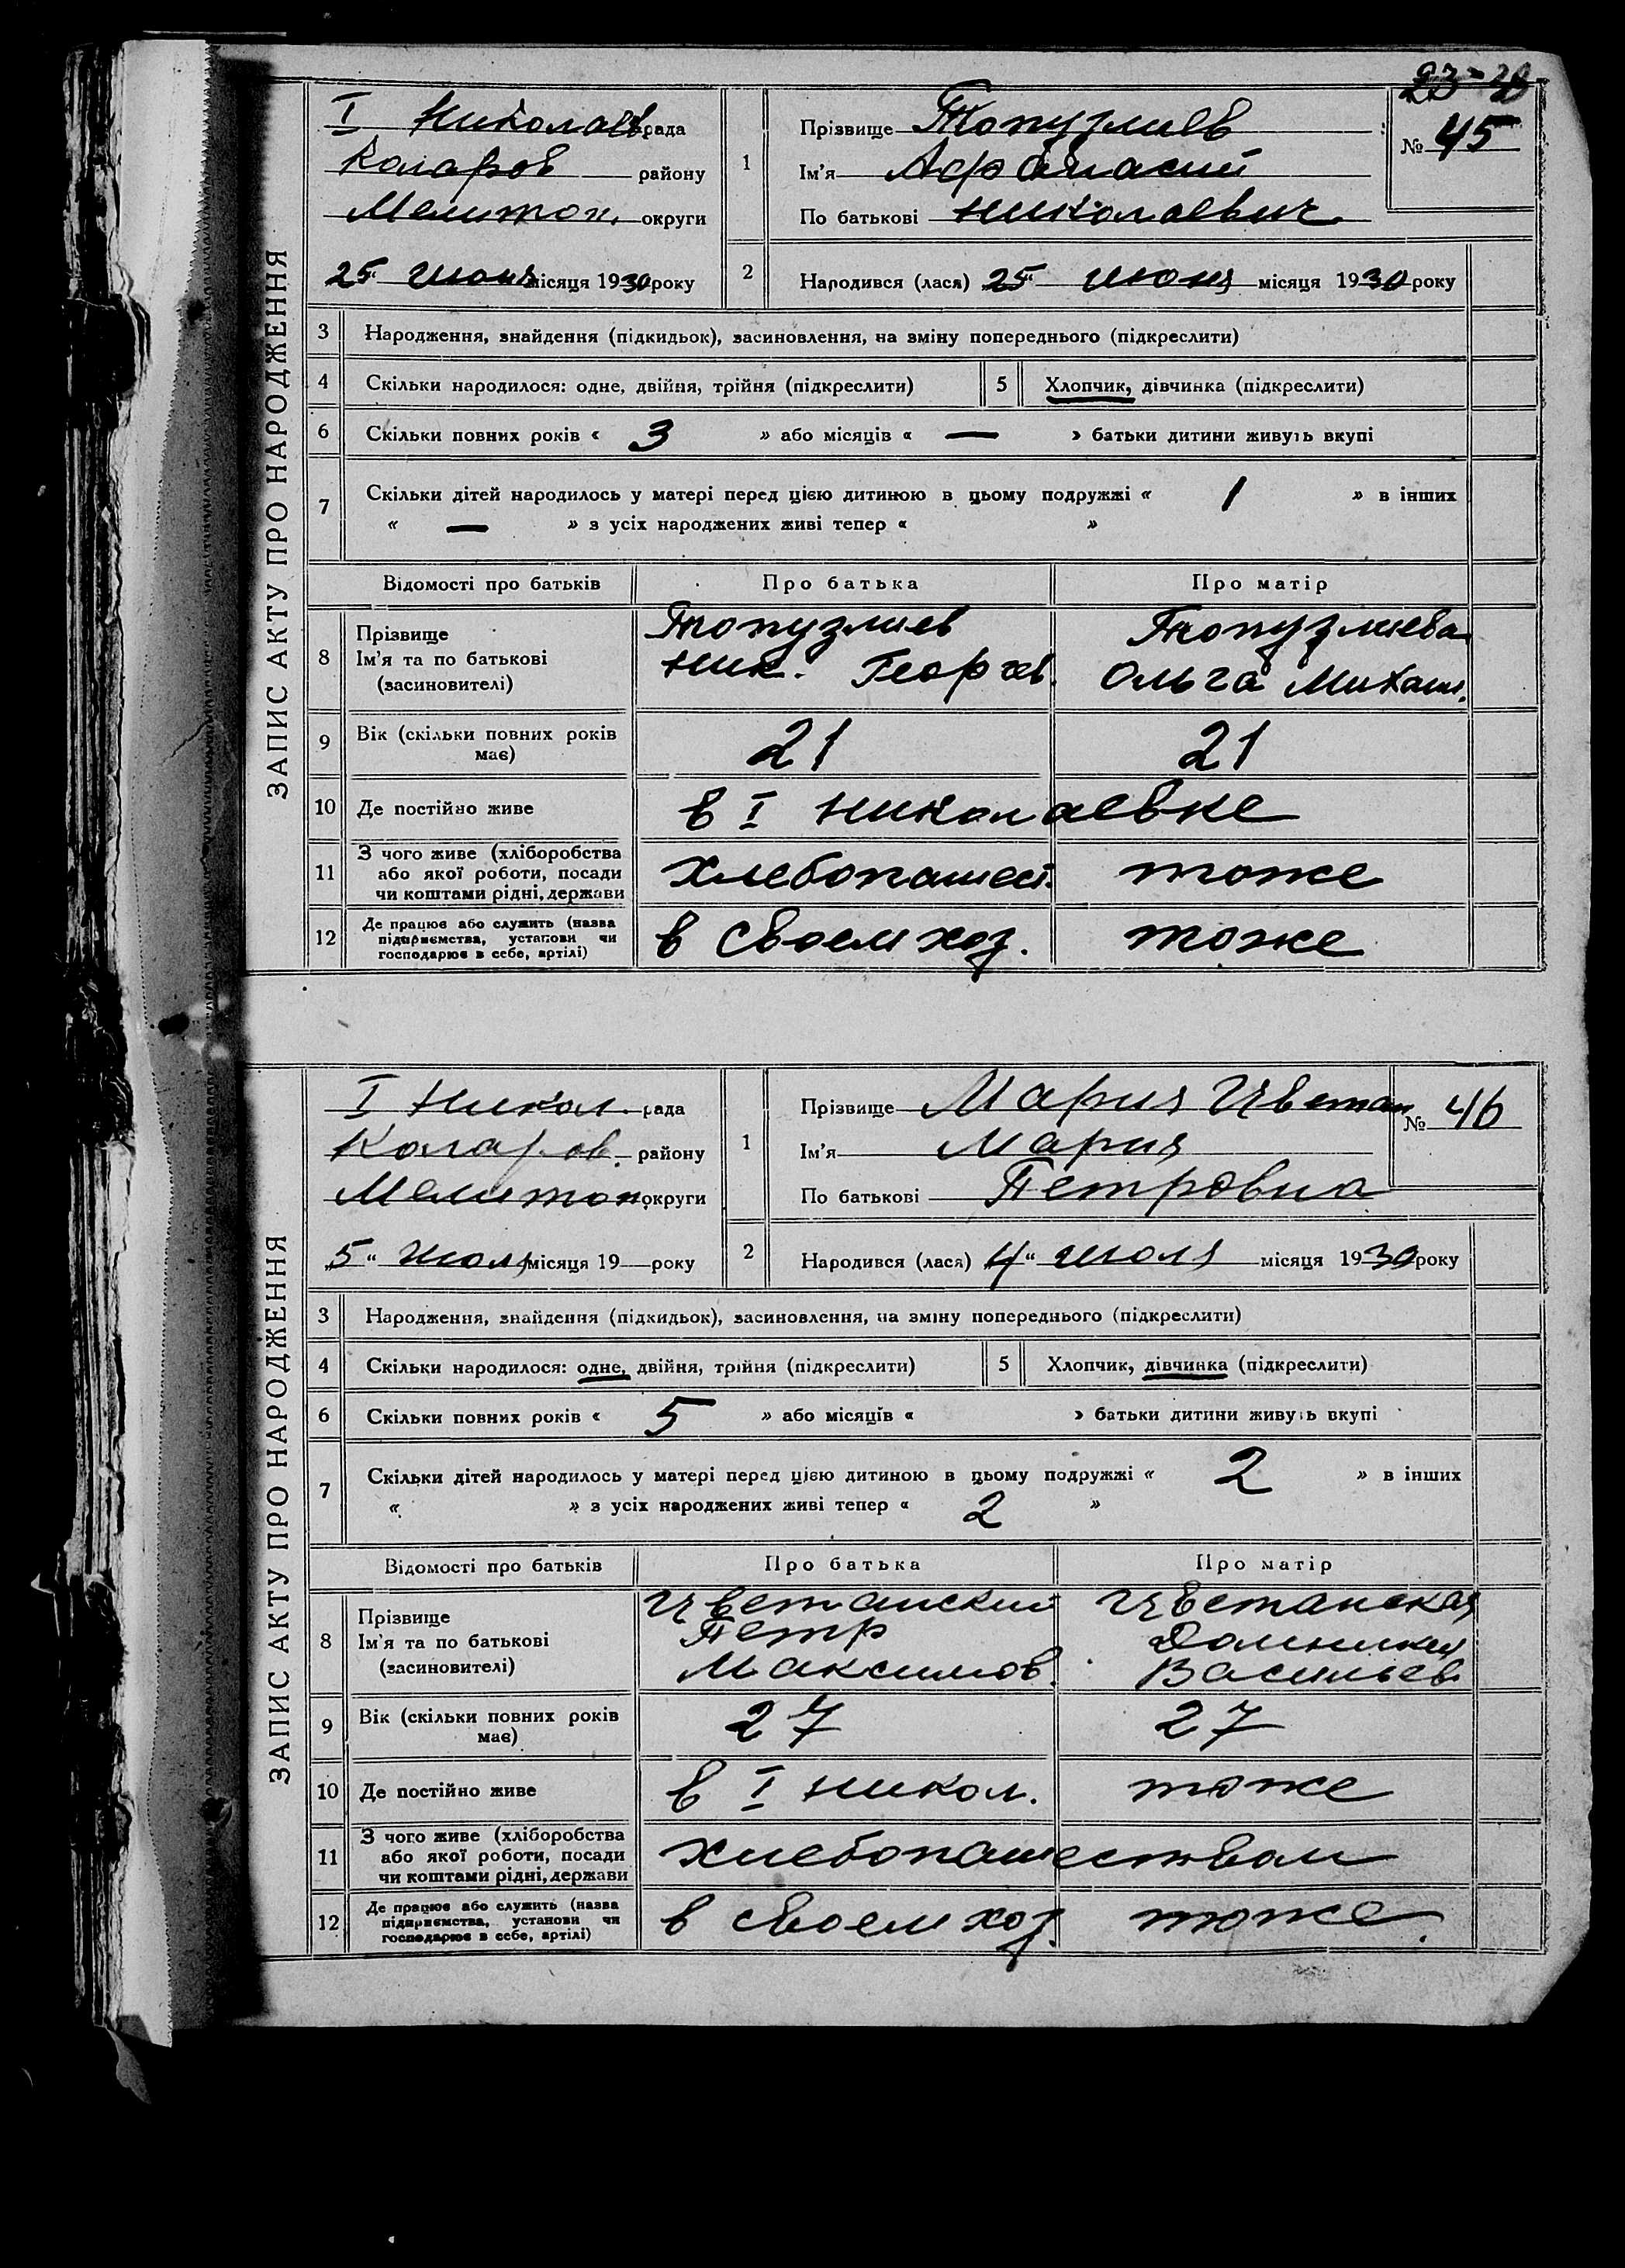 ЗАПИС АКТУ ПРО НАРОДЖЕННЯ
I Николаев рада
Коларов району
Мелитоп. округи
25 Июня місяця 1930 року
1 Прізвище Топузлиев
Ім'я Афанасий
По батькові Николаевич
№ 45
2 Народився (лася) 25 Июня місяця 1930 року
3 Народження, знайдення (підкидьок), засиновлення, на зміну попереднього (підкреслити)
4 Скільки народилося: одне, двійня, трійня (підкреслити) 5 Хлопчик, дівчинка (підкреслити)
6 Скільки повних років « 3 » або місяців « — » батьки дитини живуть вкупі
7 Скільки дітей народилось у матері перед цією дитиною в цьому подружжі « 1 » в інших
« — » з усіх народжених живі тепер « »
Відомості про батьків Про батька Про матір
8 Прізвище
Ім'я та по батькові
(засиновителі)
Топузлиев
Ник. Георгев.
Топузлиева
Ольга Михаил.
9 Вік (скільки повних років
має)
21 21
10 Де постійно живе в I Николаевке
11 З чого живе (хліборобства
або якої роботи, посади
чи коштами рідні, держави
Хлебопашест. тоже
12 Де працює або служить (назва
підприємства, установи чи
господарює в себе, артілі)
в своем хоз. тоже
ЗАПИС АКТУ ПРО НАРОДЖЕННЯ
I Никол. рада
Коларов. району
Мелитоп. округи
5 " Июля місяця 19 — року
1 Прізвище Мария Цветан
Ім'я Мария
По батькові Петровна
№ 46
2 Народився (лася) 4 " Июля місяця 1930 року
3 Народження, знайдення (підкидьок), засиновлення, на зміну попереднього (підкреслити)
4 Скільки народилося: одне, двійня, трійня (підкреслити) 5 Хлопчик, дівчинка (підкреслити)
6 Скільки повних років « 5 » або місяців « » батьки дитини живуть вкупі
7 Скільки дітей народилось у матері перед цією дитиною в цьому подружжі « 2 » в інших
« » з усіх народжених живі тепер « 2 »
Відомості про батьків Про батька Про матір
8 Прізвище
Ім'я та по батькові
(засиновителі)
Цветанский
Петр
Максимов.
Цветанская
Домникия
Васильев.
9 Вік (скільки повних років
має)
27 27
10 Де постійно живе в I Никол. тоже
11 З чого живе (хліборобства
або якої роботи, посади
чи коштами рідні, держави
Хлебопашеством
12 Де працює або служить (назва
підприємства, установи чи
господарює в себе, артілі)
в своем хоз. тоже